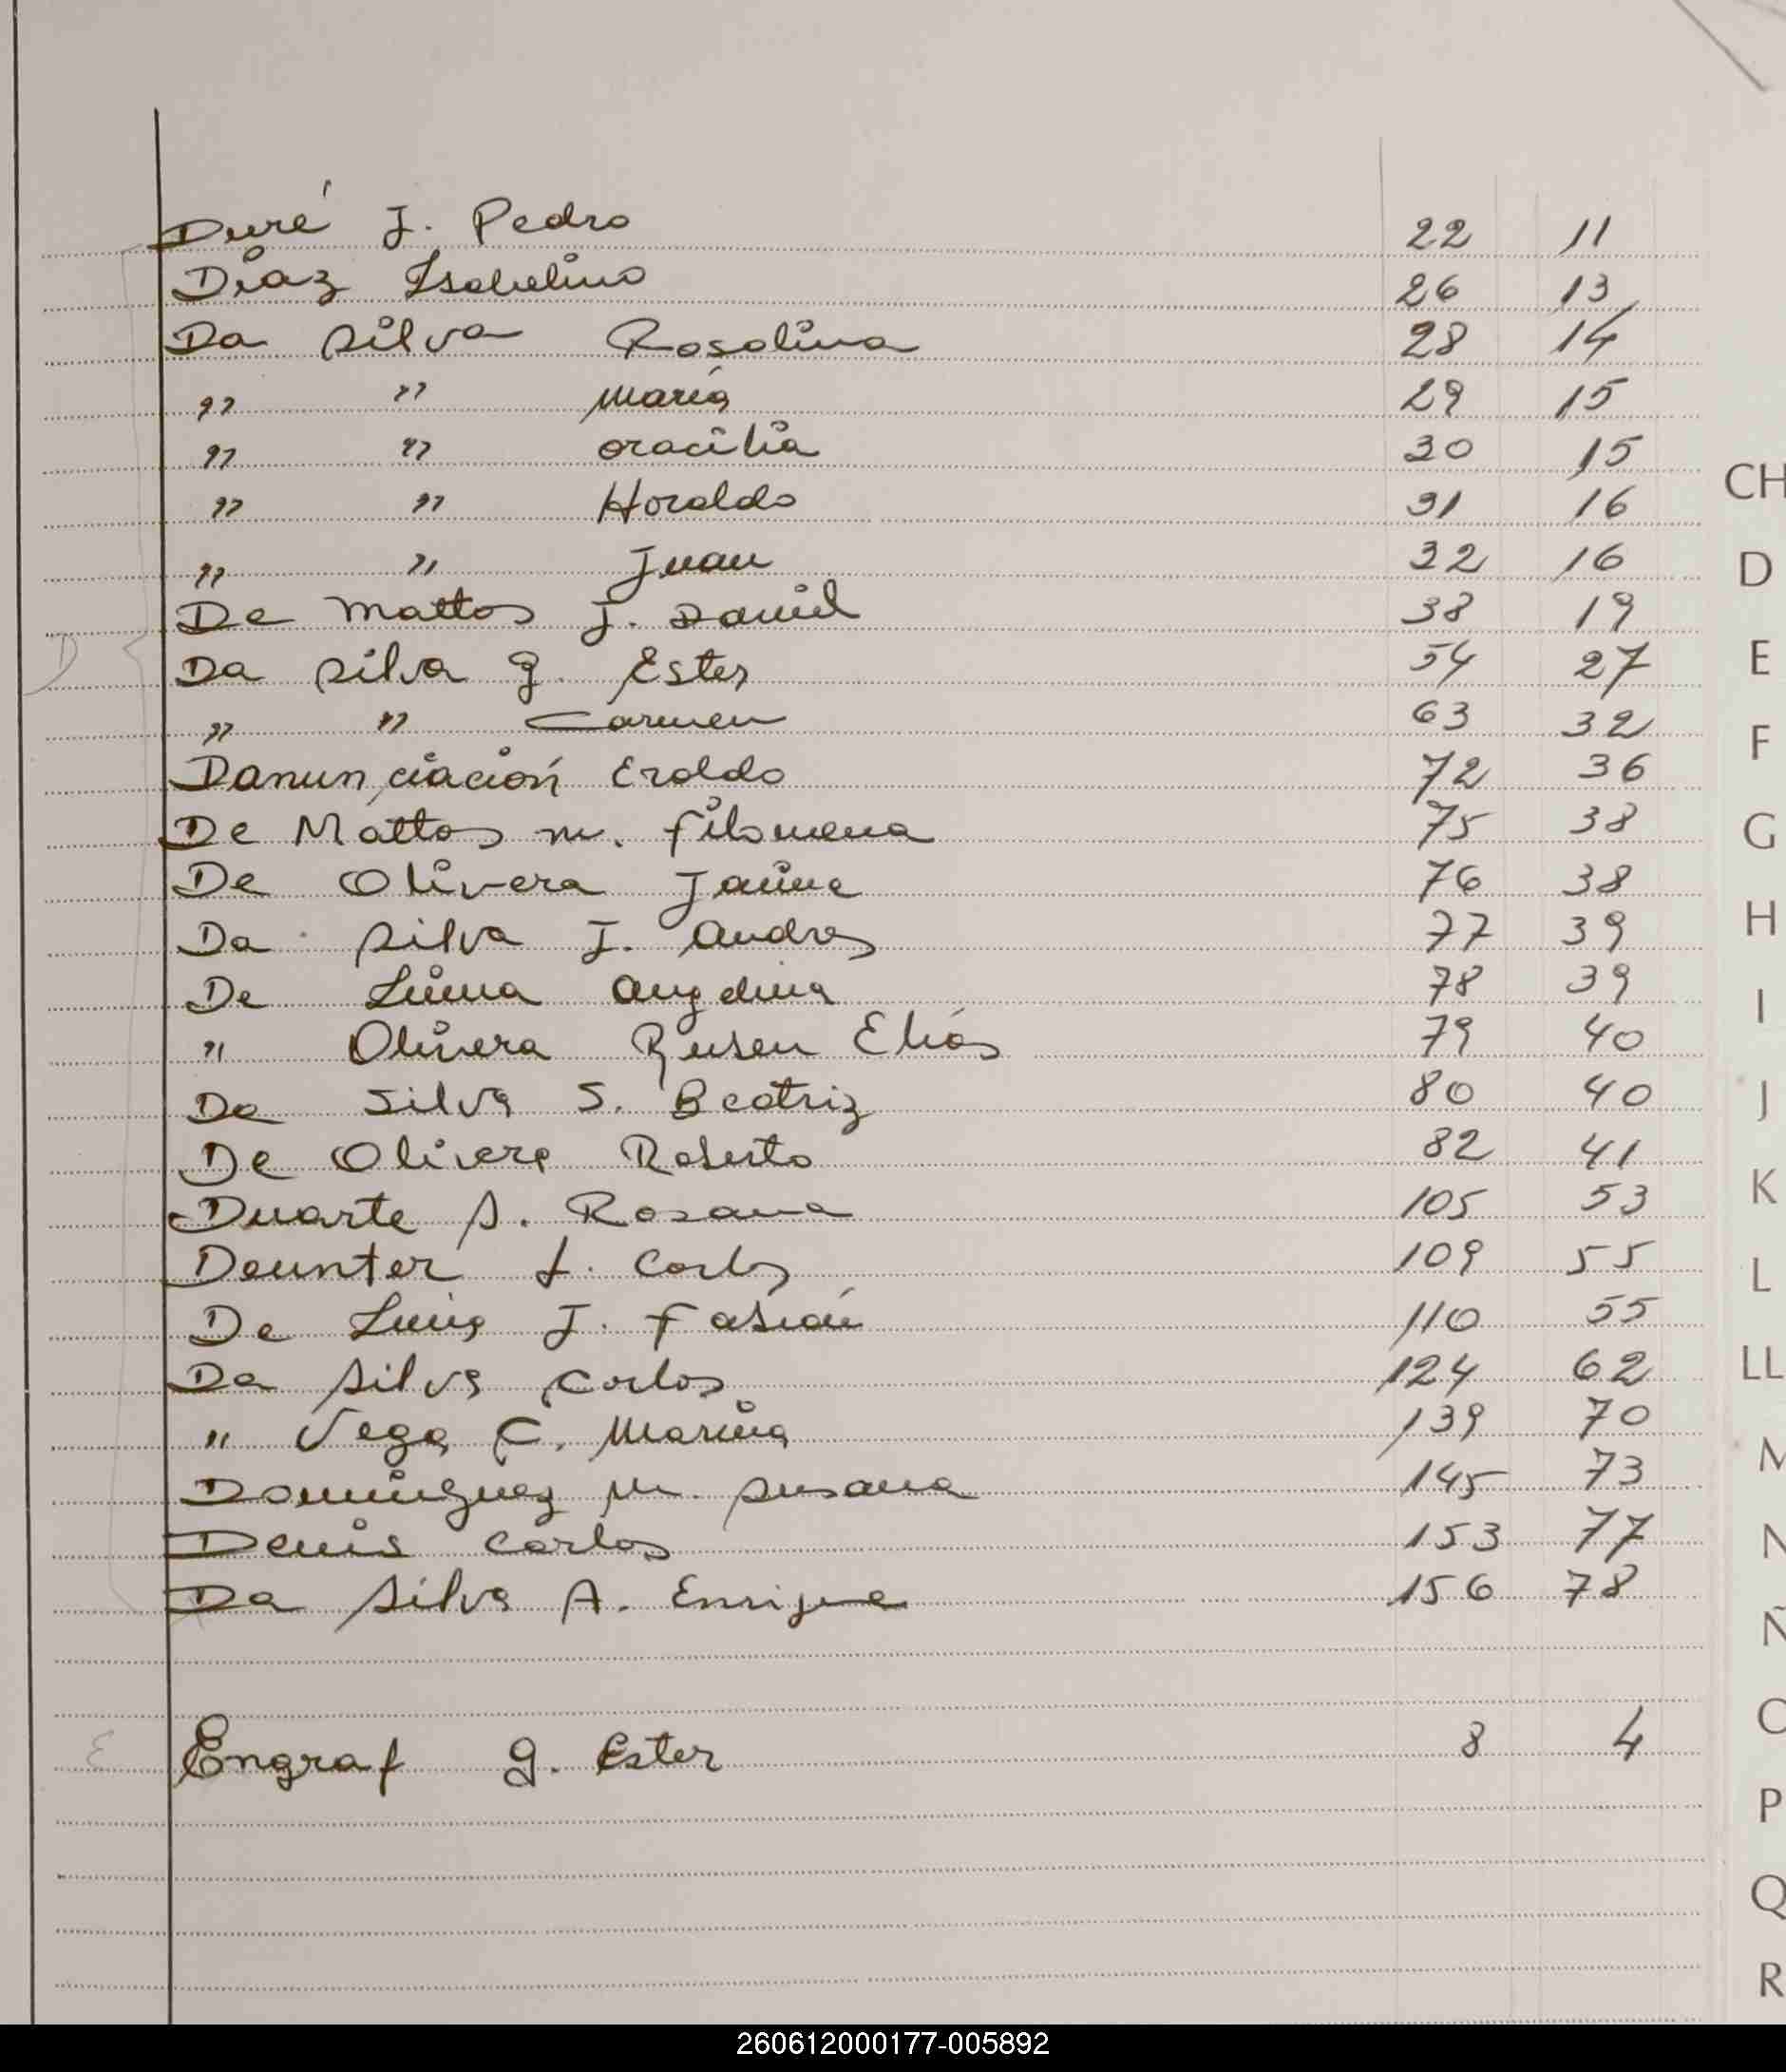 Duré J. Pedro 22 11
Diaz Isabelino 26 13
Da Silva Rosalina 28 14
" " María 29 15
" " oracilia 30 15
" " Horaldo 31 16
" " Juan 32 16
De Mattos J. Daniel 38 19
D
Da Silva g. Ester 54 27
" " Carmen 63 32
Danunciación Eraldo 72 36
De Mattos m. Filomena 75 38
De Olivera Jaime 76 38
Da Silva J. Andres 77 39
De Lima Angelina 78 39
" Olivera Ruben Elías 79 40
Da Silva S. Beatriz 80 40
De Olivera Roberto 82 41
Duarte A. Rosana 105 53
Deunter L. Carlos 109 55
De Lima J. Fabián 110 55
Da Silva Carlos 124 62
" Vega C. Marina 139 70
Dominguez M. Susana 145 73
Denis Carlos 153 77
Da Silva A. Enrique 156 78
E
Engraf g. Ester 8 4
CH
D
E
F
G
H
I
J
K
L
LL
M
N
Ñ
O
P
Q
R
260612000177-005892